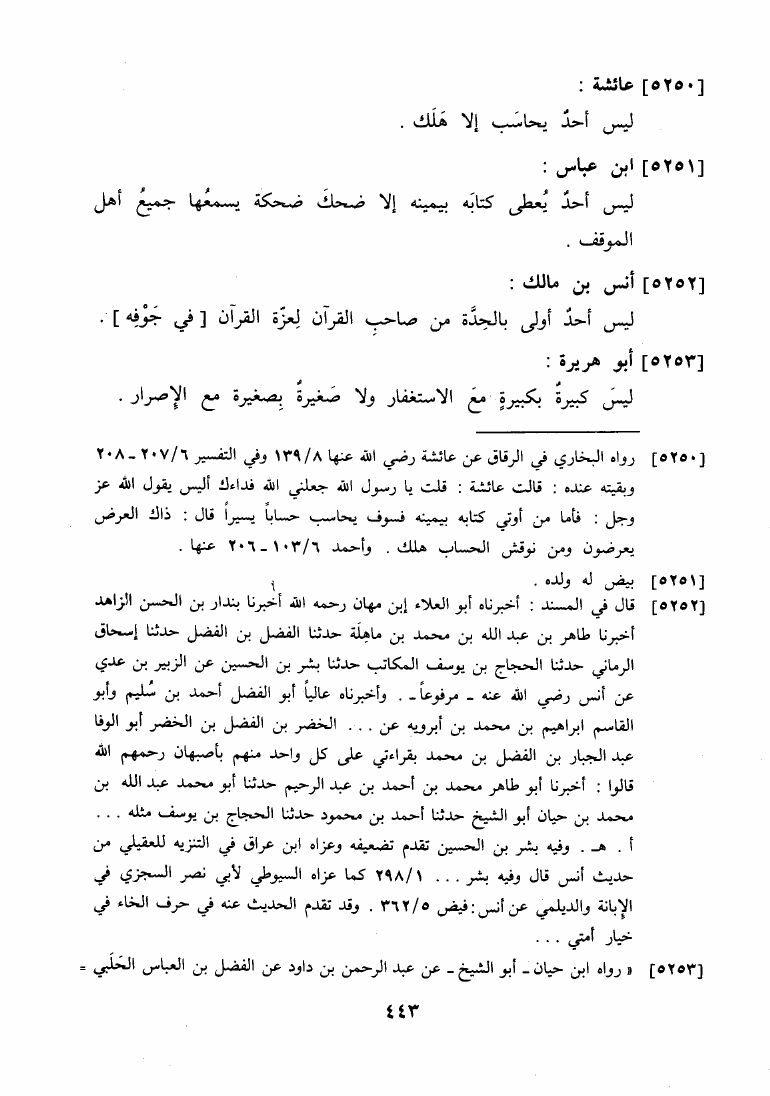 [٥٢٥٠] عائشة :
ليس أحدٌ يحاسَب إلا هَلَك .
[٥٢٥١] ابن عباس :
ليس أحدٌ يُعطى كتابَه بيمينه إلا ضحكَ ضحكة يسمعُها جميعُ أهل
الموقف .
[٥٢٥٢] أنس بن مالك :
ليس أحدٌ أولى بالحِدَّة من صاحبِ القرآن لِعزّة القرآن [ في جَوْفِه ] .
[٥٢٥٣] أبو هريرة :
ليسَ كبيرةٌ بكبيرةٍ معَ الاستغفار ولا صَغيرةٌ بِصغيرة مع الإصرار .
[٥٢٥٠] رواه البخاري في الرقاق عن عائشة رضي الله عنها ١٣٩/٨ وفي التفسير ٢٠٧/٦ ـ ٢٠٨
وبقيته عنده : قالت عائشة : قلت يا رسول الله جعلني الله فداءك أليس يقول الله عز
وجل : فأما من أوتي كتابه بيمينه فسوف يحاسب حساباً يسيراً قال : ذاك العرض
يعرضون ومن نوقش الحساب هلك . وأحمد ١٠٣/٦ ـ ٢٠٦ عنها .
[٥٢٥١] بيض له ولده .
[٥٢٥٢] قال في المسند : أخبرناه أبو العلاء إبن مهان رحمه الله أخبرنا بندار بن الحسن الزاهد
أخبرنا طاهر بن عبد الله بن محمد بن ماهِلَة حدثنا الفضل بن الفضل حدثنا إسحاق
الرماني حدثنا الحجاج بن يوسف المكاتب حدثنا بشر بن الحسين عن الزبير بن عدي
عن أنس رضي الله عنه ـ مرفوعاً ـ . وأخبرناه عالياً أبو الفضل أحمد بن سُليم وأبو
القاسم ابراهيم بن محمد بن أبرويه عن ... الخضر بن الفضل بن الخضر أبو الوفا
عبد الجبار بن الفضل بن محمد بقراءتي على كل واحد منهم بأصبهان رحمهم الله
قالوا : أخبرنا أبو طاهر محمد بن أحمد بن عبد الرحيم حدثنا أبو محمد عبد الله بن
محمد بن حيان أبو الشيخ حدثنا أحمد بن محمود حدثنا الحجاج بن يوسف مثله ...
أ . هـ . وفيه بشر بن الحسين تقدم تضعيفه وعزاه ابن عراق في التنزيه للعقيلي من
حديث أنس قال وفيه بشر ... ٢٩٨/١ كما عزاه السيوطي لأبي نصر السجزي في
الإبانة والديلمي عن أنس : فيض ٣٦٢/٥ . وقد تقدم الحديث عنه في حرف الخاء في
خيار أمتي ...
[٥٢٥٣] « رواه ابن حيان ـ أبو الشيخ ـ عن عبد الرحمن بن داود عن الفضل بن العباس الحَلَبي =
٤٤٣